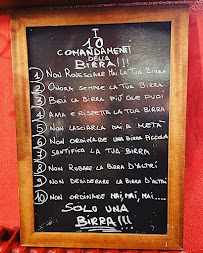 I
10
COMANDAMENTI
DELLA
BIRRA!!!
1 NON ROVESCIARE MAI LA TUA BIRRA
2 ONORA SEMPRE LA TUA BIRRA
3 BEVI LA BIRRA PIÙ CHE PUOI
4 AMA E RISPETTA LA TUA BIRRA
5 NON LASCIARLA MAI A METÀ
6 NON ORDINARE UNA BIRRA PICCOLA
7 SANTIFICA LA TUA BIRRA
8 NON RUBARE LA BIRRA D'ALTRI
9 NON DESIDERARE LA BIRRA D'ALTRI
10 NON ORDINARE MAI, MAI, MAI....
SOLO UNA
BIRRA!!!